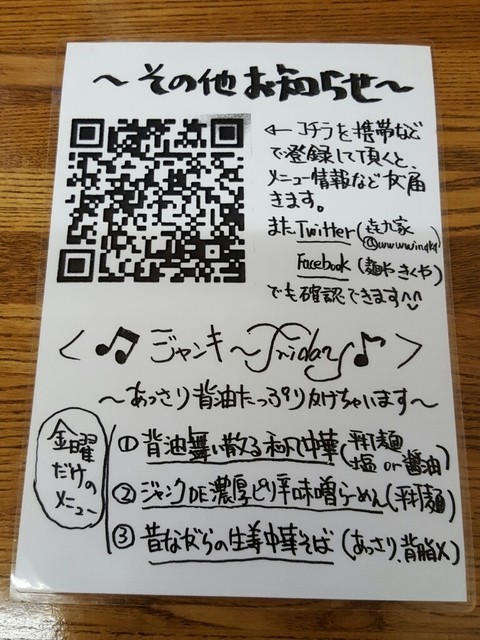 〜その他お知らせ〜
← コチラを携帯など
で登録して頂くと、
メニュー情報など友届
きます。
また Twitter (㐂九家
Facebook (麺や きくや)
でも確認できます^^
〈 ♫ ジャンキ〜Friday ♪ 〉
〜あっさり背油たっぷりかけちゃいます〜
金曜
だけの
メニュー
① 背油舞い散る和風中華 (平打麺
塩 or 醤油)
② ジャンクDE濃厚ピリ辛味噌らーめん (平打麺)
③ 昔ながらの生姜中華そば (あっさり、背脂×)